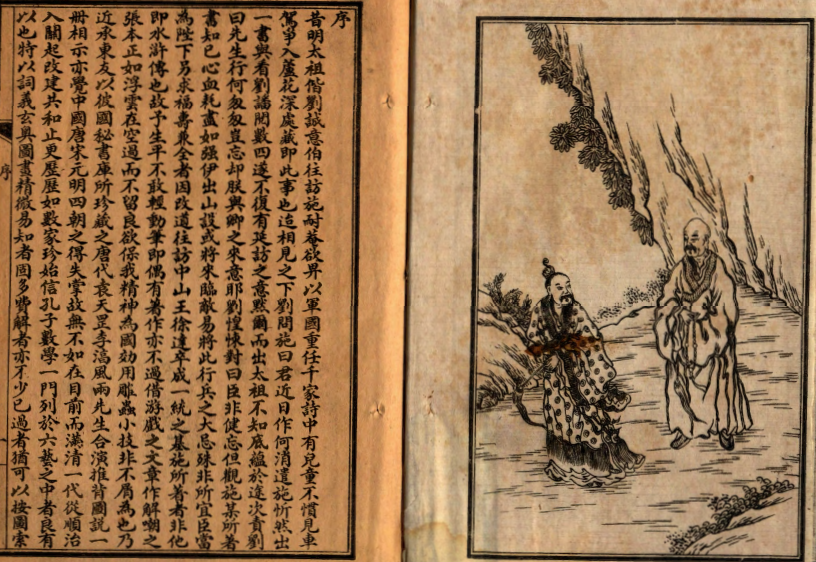 序
昔明太祖偕劉誠意伯往訪施耐菴欲畀以軍國重任千家詩中有兒童不慣見車
駕爭入蘆花深處藏即此事也迨相見之下劉問施曰君近日作何消遣施忻然出
一書與看劉譒閱數四遂不復有延訪之意默爾而出太祖不知底蘊於途次責劉
曰先生行何匆匆豈忘却朕與卿之來意耶劉惶悚對曰臣非健忘但觀施某所著
書知已心血耗盡如强伊出山設或將來臨敵易將此行兵之大忌殊非所宜臣當
為陛下另求福壽兼全者因改道往訪中山王徐達卒成一統之基施所著者非他
即水滸傳也故予生平不敢輕動筆即偶有著作亦不過借游戲之文章作解嘲之
張本正如浮雲在空過而不留良欲保我精神為國効用雕蟲小技非不屑為也乃
近承東友以彼國秘書庫所珍藏之唐代袁天罡李淳風兩先生合演推背圖說一
冊相示亦覺中國唐宋元明四朝之得失掌故無不如在目前而滿清一代從順治
入關起改建共和止更歷歷如數家珍始信孔子數學一門列於六藝之中者良有
以也特以詞義玄奥圖畫精微易知者固多費解者亦不少已過者猶可以按圖索
序